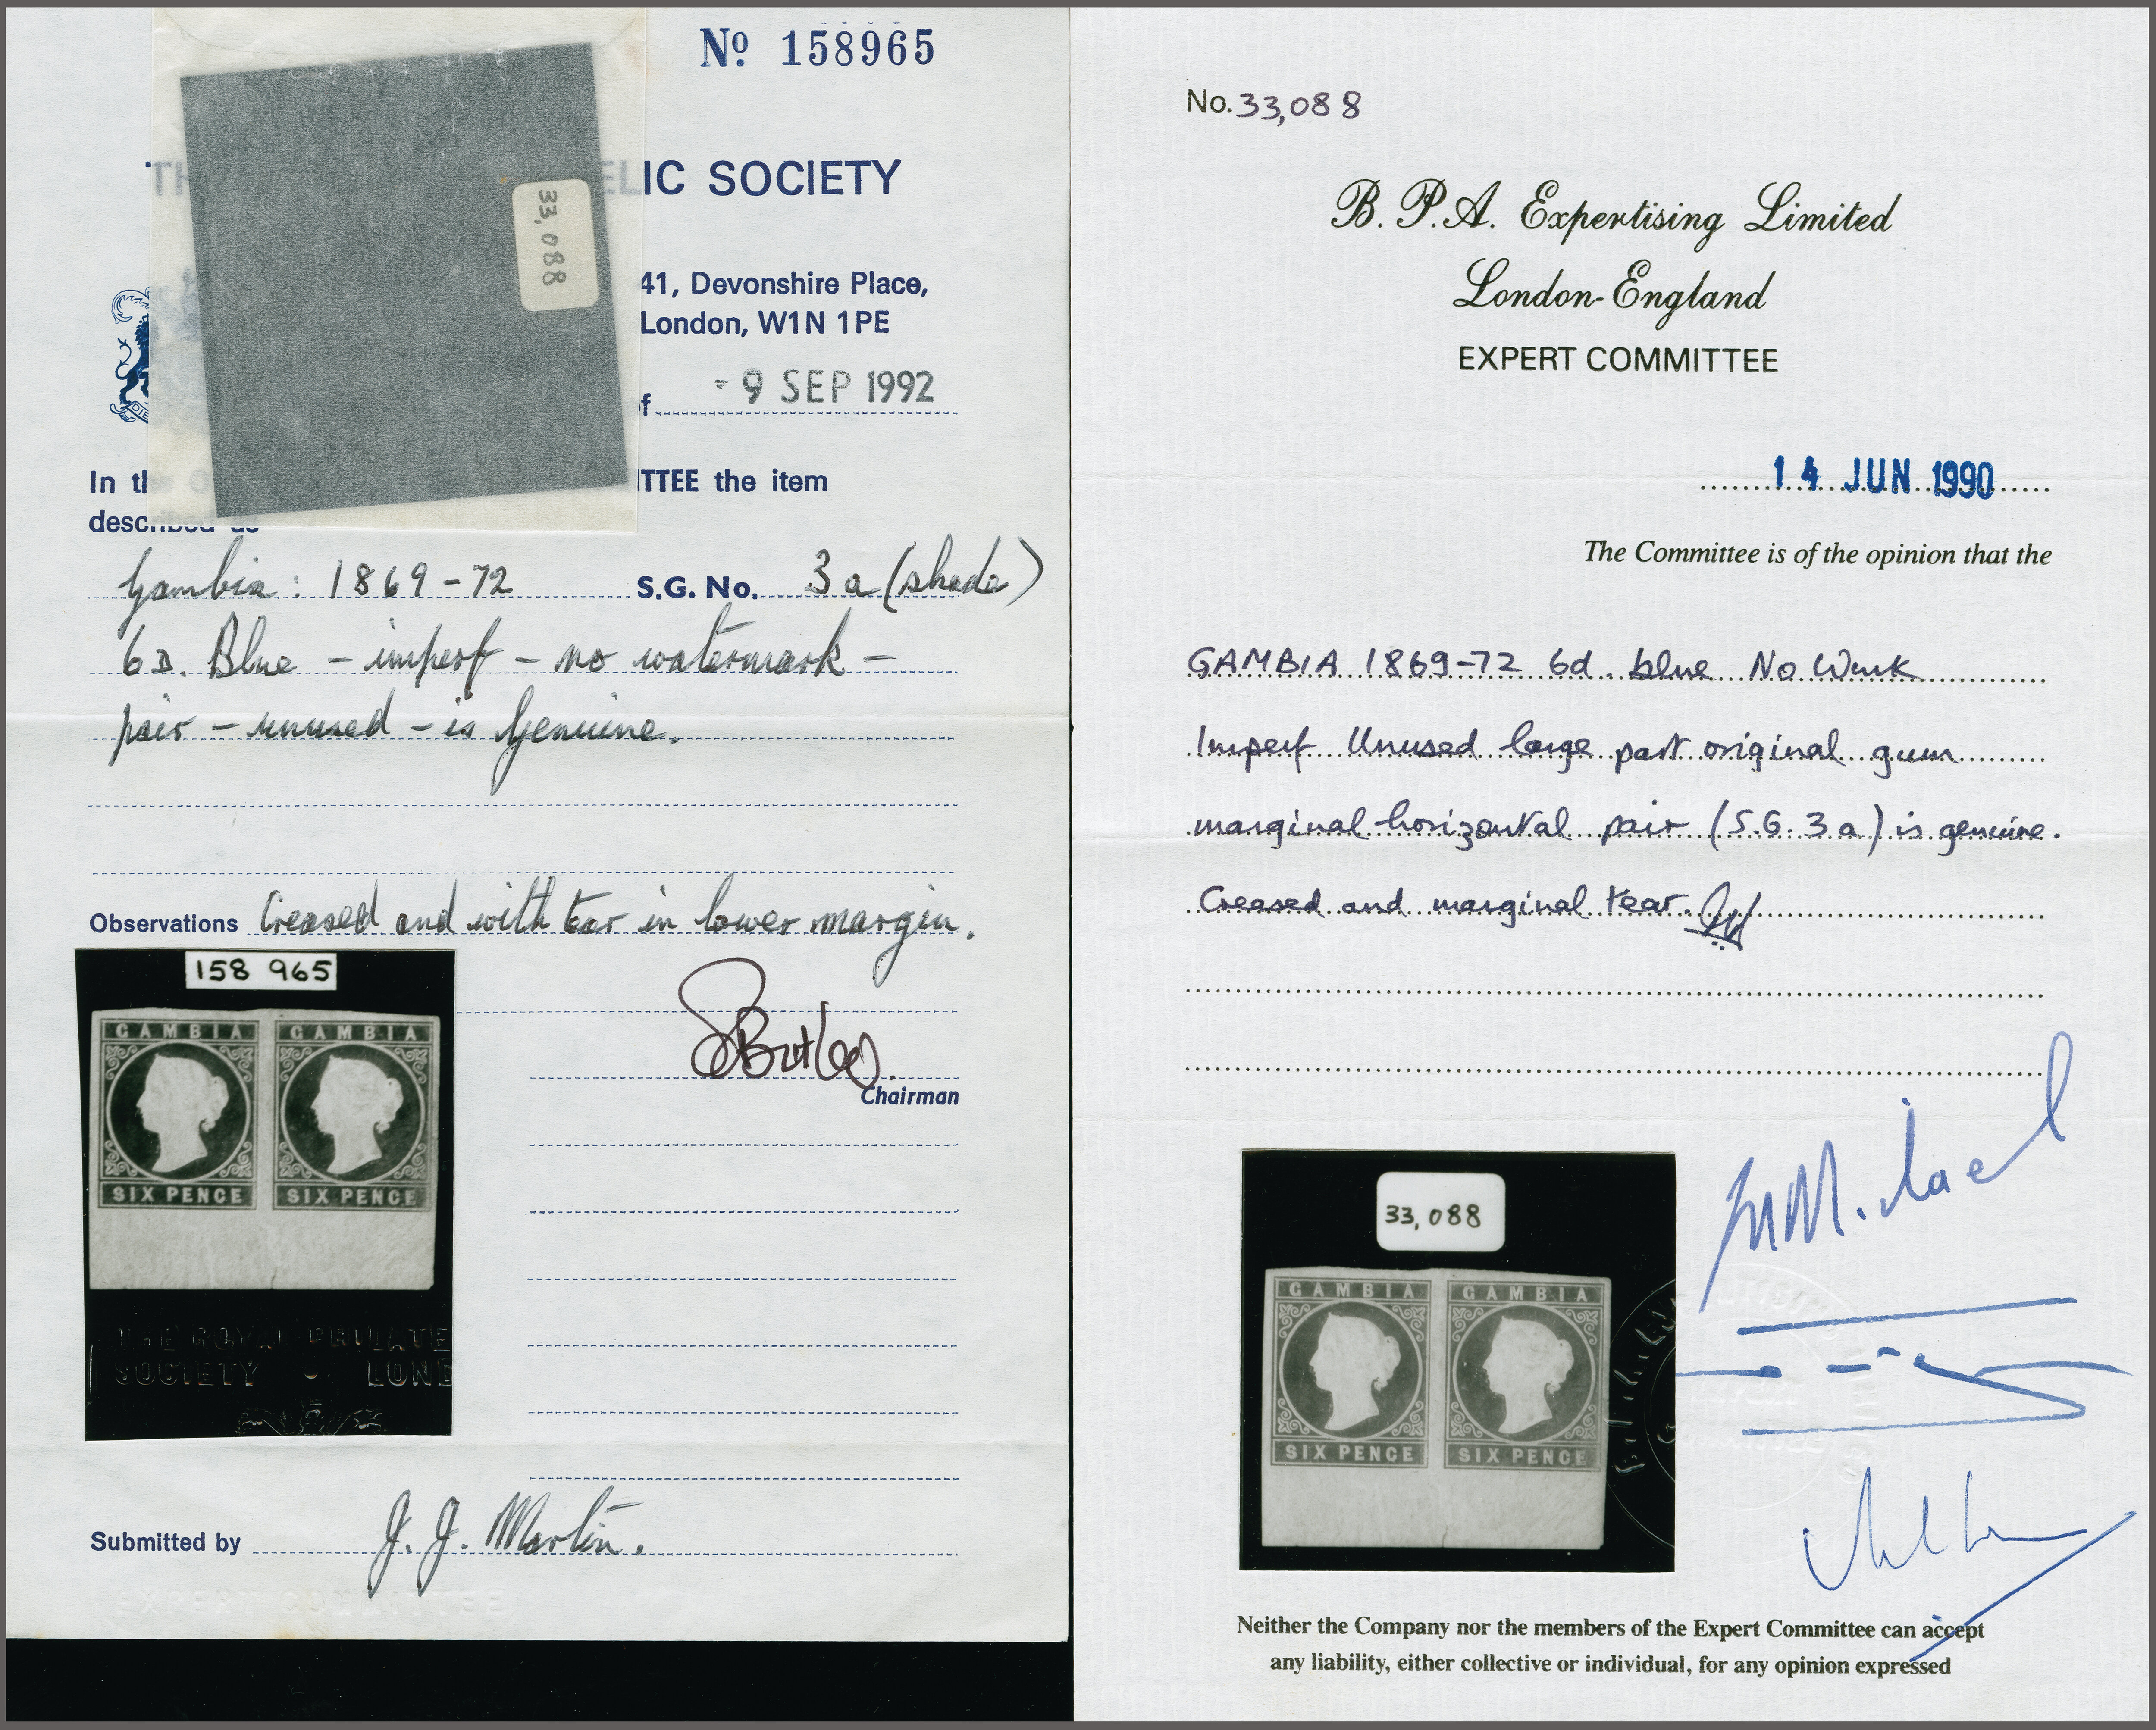 No. 158965
TH ELIC SOCIETY
33,088
41, Devonshire Place,
London, W1N 1PE
of - 9 SEP 1992
In the O ITTEE the item
described as
Gambia: 1869-72 S.G. No. 3a (shade)
6D. Blue - imperf - no watermark -
pair - unused - is Genuine.
Observations Creased and with tear in lower margin.
158 965
GAMBIA GAMBIA
SIX PENCE SIX PENCE
Chairman
THE ROYAL PHILATE
SOCIETY · LOND
Submitted by J. J. Martin.
No. 33,088
B. P.A. Expertising Limited
London-England
EXPERT COMMITTEE
14 JUN 1990
The Committee is of the opinion that the
GAMBIA 1869-72 6d. blue No Wmk
Imperf Unused large part original gum
marginal horizontal pair (S.G. 3a) is genuine.
Creased and marginal tear.
33,088
GAMBIA GAMBIA
SIX PENCE SIX PENCE
Neither the Company nor the members of the Expert Committee can accept
any liability, either collective or individual, for any opinion expressed